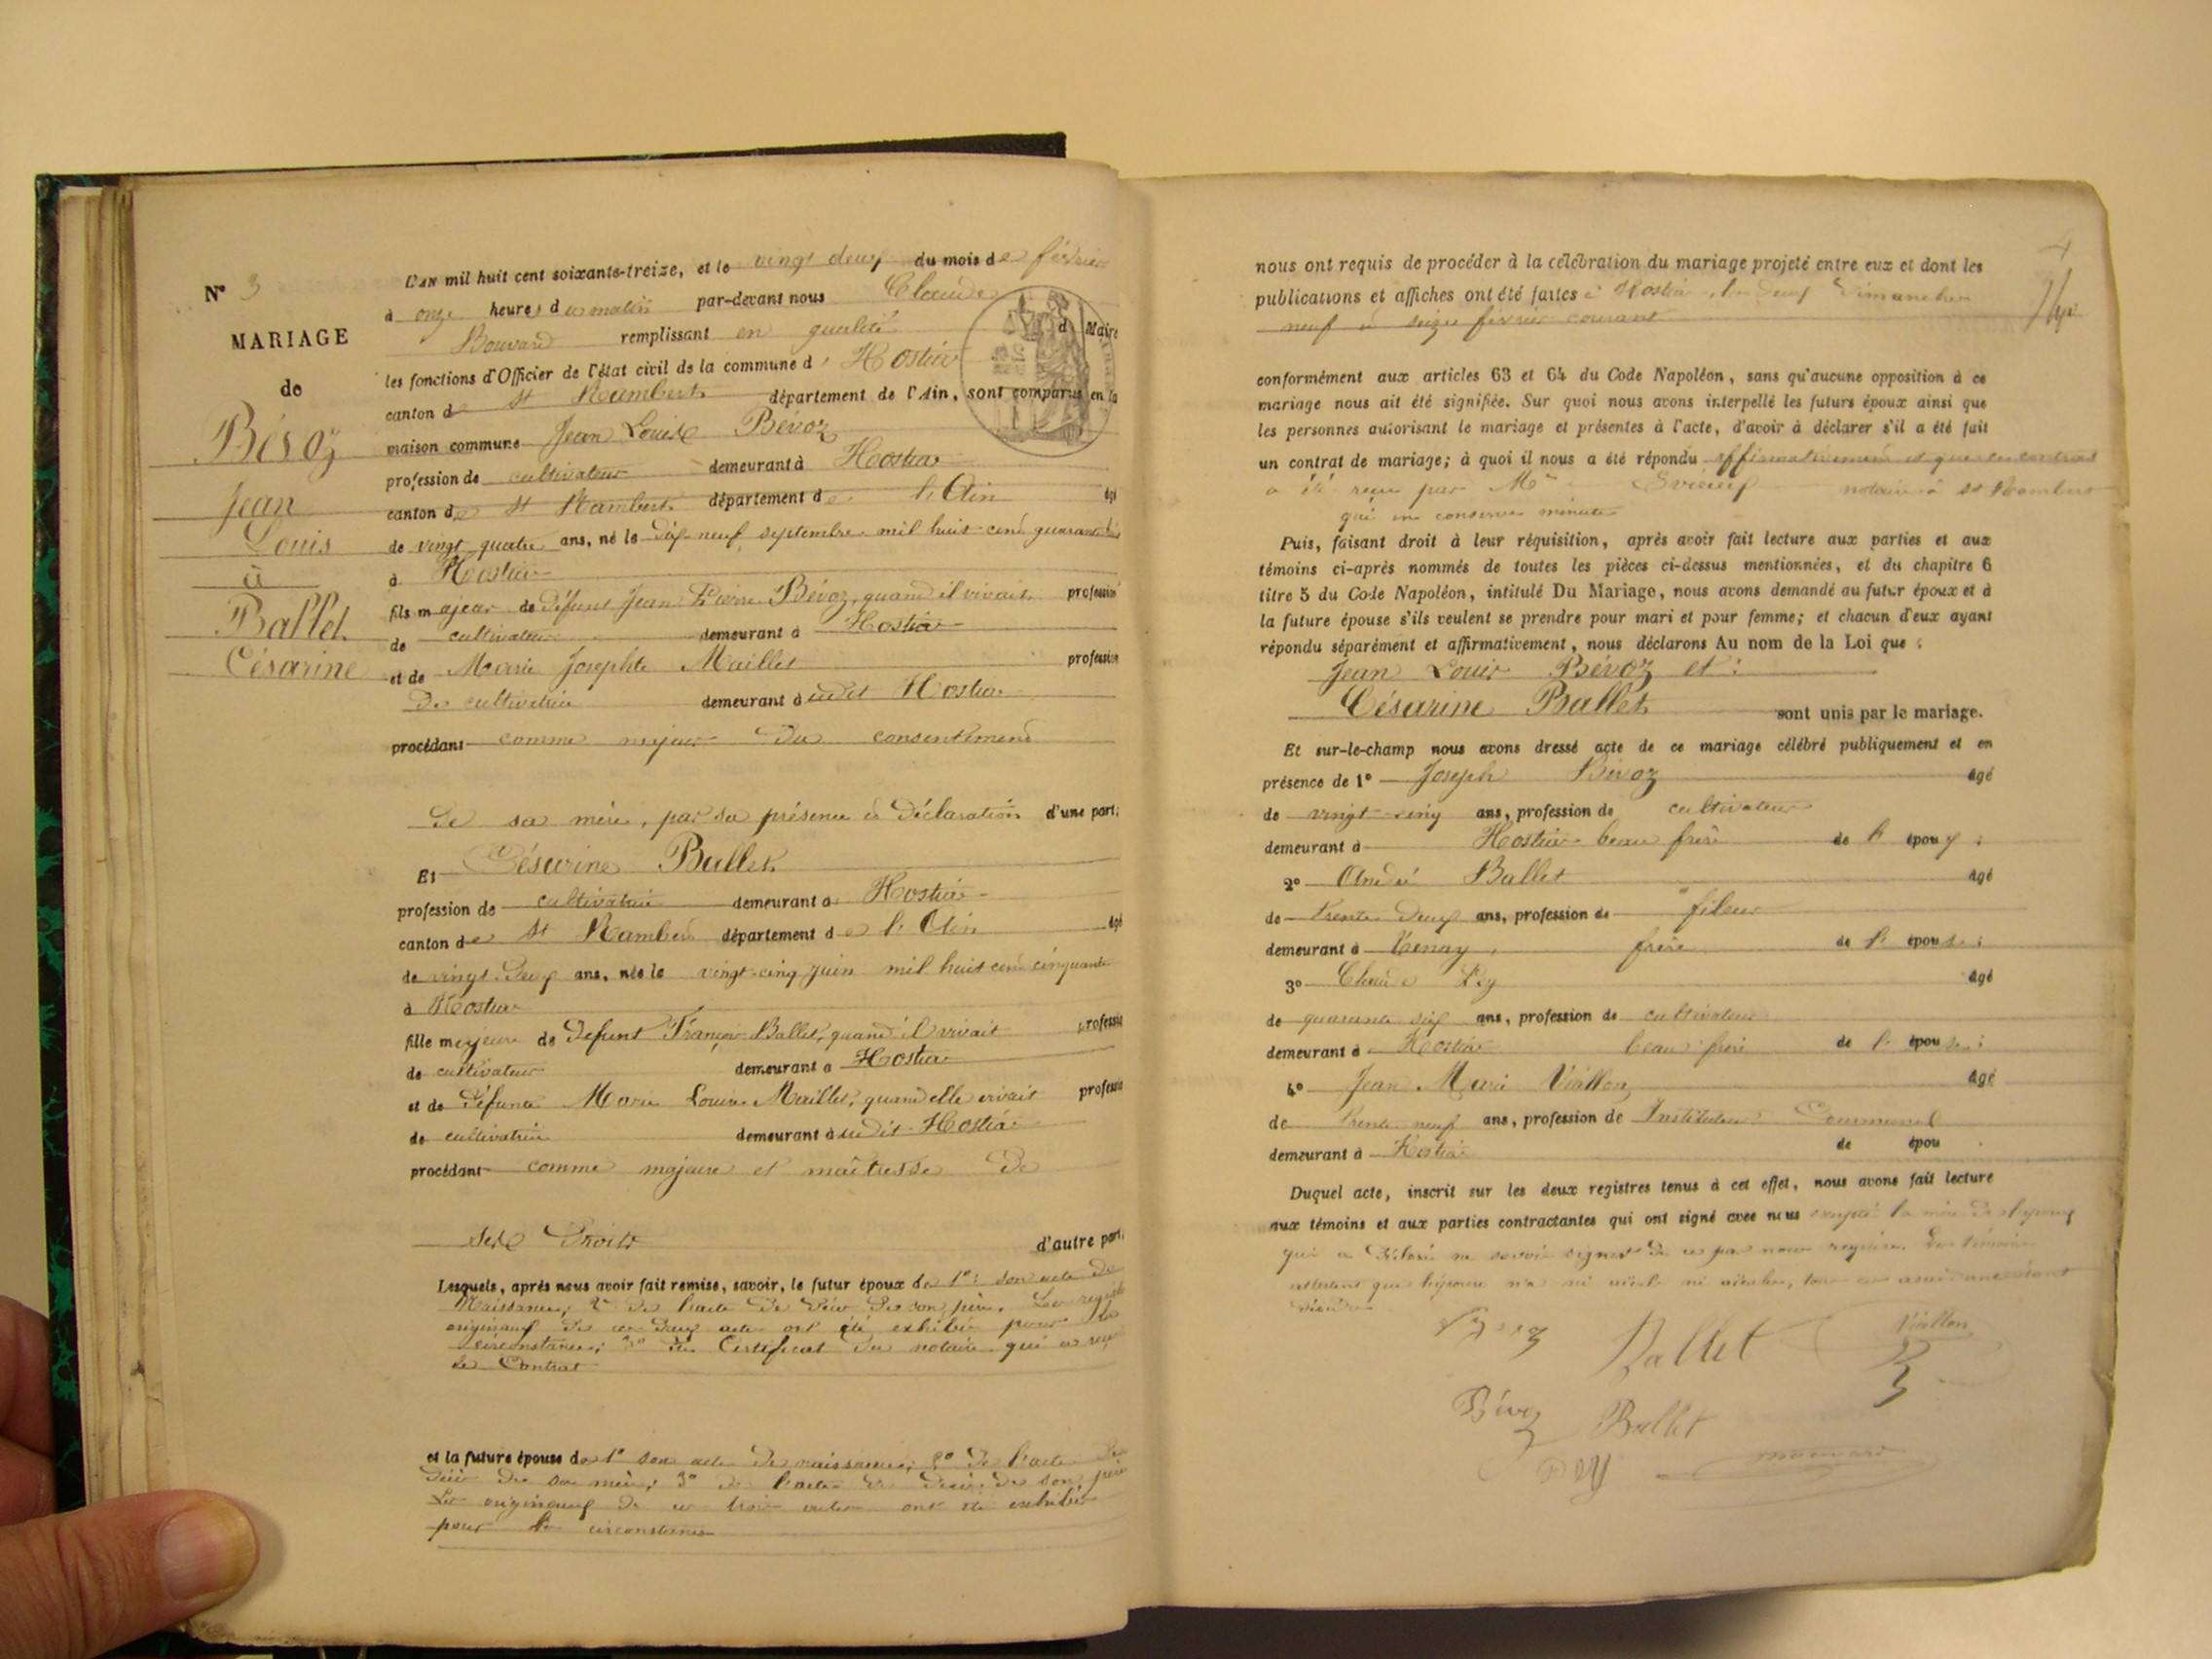 N° 3
MARIAGE
de
Bévoz
Jean
Louis
à
Ballet
Césarine
L'AN mil huit cent soixante-treize, et le vingt deux du mois de février
à onze heures du matin par-devant nous Claude
Bouvard remplissant en qualité d Maire
les fonctions d'Officier de l'état civil de la commune d' Hostia
canton de St Rambert département de l'Ain, sont comparus en la
maison commune Jean Louis Bévoz
profession de cultivateur demeurant à Hostia
canton de St Rambert département de l'Ain âgé
de vingt quatre ans, né le dix neuf septembre mil huit cent quarante
à Hostia
fils majeur de défunt Jean Pierre Bévoz, quand il vivait profession
de cultivateur demeurant à Hostia
et de Marie Josephte Maillet profession
de cultivatrice demeurant à sudit Hostia
procédant comme majeur du consentement
de sa mère, par sa présence et déclaration d'une part;
Et Césarine Ballet
profession de cultivatrice demeurant à Hostia
canton de St Rambert département de l'Ain âgé
de vingt-deux ans, née le vingt-cinq juin mil huit cent cinquante
à Hostia
fille majeure de défunt François Ballet, quand il vivait profession
de cultivateur demeurant à Hostia
et de défunte Marie Louise Maillet, quand elle vivait profession
de cultivatrice demeurant à sudit Hostia
procédant comme majeure et maîtresse de
ses droits d'autre part;
Lesquels, après nous avoir fait remise, savoir, le futur époux de 1°: son acte de
naissance; 2° de l'acte de décès de son père. Les registres
originaux de ces deux actes ont été exhibés pour la
circonstance; 3° du Certificat du notaire qui a reçu
le Contrat
et la future épouse de 1° son acte de naissance; 2° de l'acte de
décès de sa mère; 3° de l'acte de décès de son père
Les originaux de ces trois actes ont été exhibés
pour la circonstance
4
nous ont requis de procéder à la célébration du mariage projeté entre eux et dont les
publications et affiches ont été faites à Hostia, les deux dimanches
neuf et seize février courant
conformément aux articles 63 et 64 du Code Napoléon, sans qu'aucune opposition à ce
mariage nous ait été signifiée. Sur quoi nous avons interpellé les futurs époux ainsi que
les personnes autorisant le mariage et présentes à l'acte, d'avoir à déclarer s'il a été fait
un contrat de mariage; à quoi il nous a été répondu affirmativement et que ce contrat
a été reçu par Me notaire à St Rambert
qui en conserve minute
Puis, faisant droit à leur réquisition, après avoir fait lecture aux parties et aux
témoins ci-après nommés de toutes les pièces ci-dessus mentionnées, et du chapitre 6
titre 5 du Code Napoléon, intitulé Du Mariage, nous avons demandé au futur époux et à
la future épouse s'ils veulent se prendre pour mari et pour femme; et chacun d'eux ayant
répondu séparément et affirmativement, nous déclarons Au nom de la Loi que :
Jean Louis Bévoz et :
Césarine Ballet sont unis par le mariage.
Et sur-le-champ nous avons dressé acte de ce mariage célébré publiquement et en
présence de 1° Joseph Bévoz âgé
de vingt-cinq ans, profession de cultivateur
demeurant à Hostia beau frère de l' époux ;
2° André Ballet âgé
de trente deux ans, profession de fileur
demeurant à Tenay, frère de l' épouse ;
3° Claude Rey âgé
de quarante six ans, profession de cultivateur
demeurant à Hostia beau frère de l' épouse ;
4° Jean Marie Viallon âgé
de trente neuf ans, profession de Instituteur Communal
demeurant à Hostia de épou .
Duquel acte, inscrit sur les deux registres tenus à cet effet, nous avons fait lecture
aux témoins et aux parties contractantes qui ont signé avec nous excepté la mère de l'époux
qui a déclaré ne savoir signer de ce par nous requise. Les témoins
attestent que l'épouse n'a ni aïeuls ni aïeules, tous
Bévoz Ballet Viallon
Bévoz Ballet
Rey Bouvard